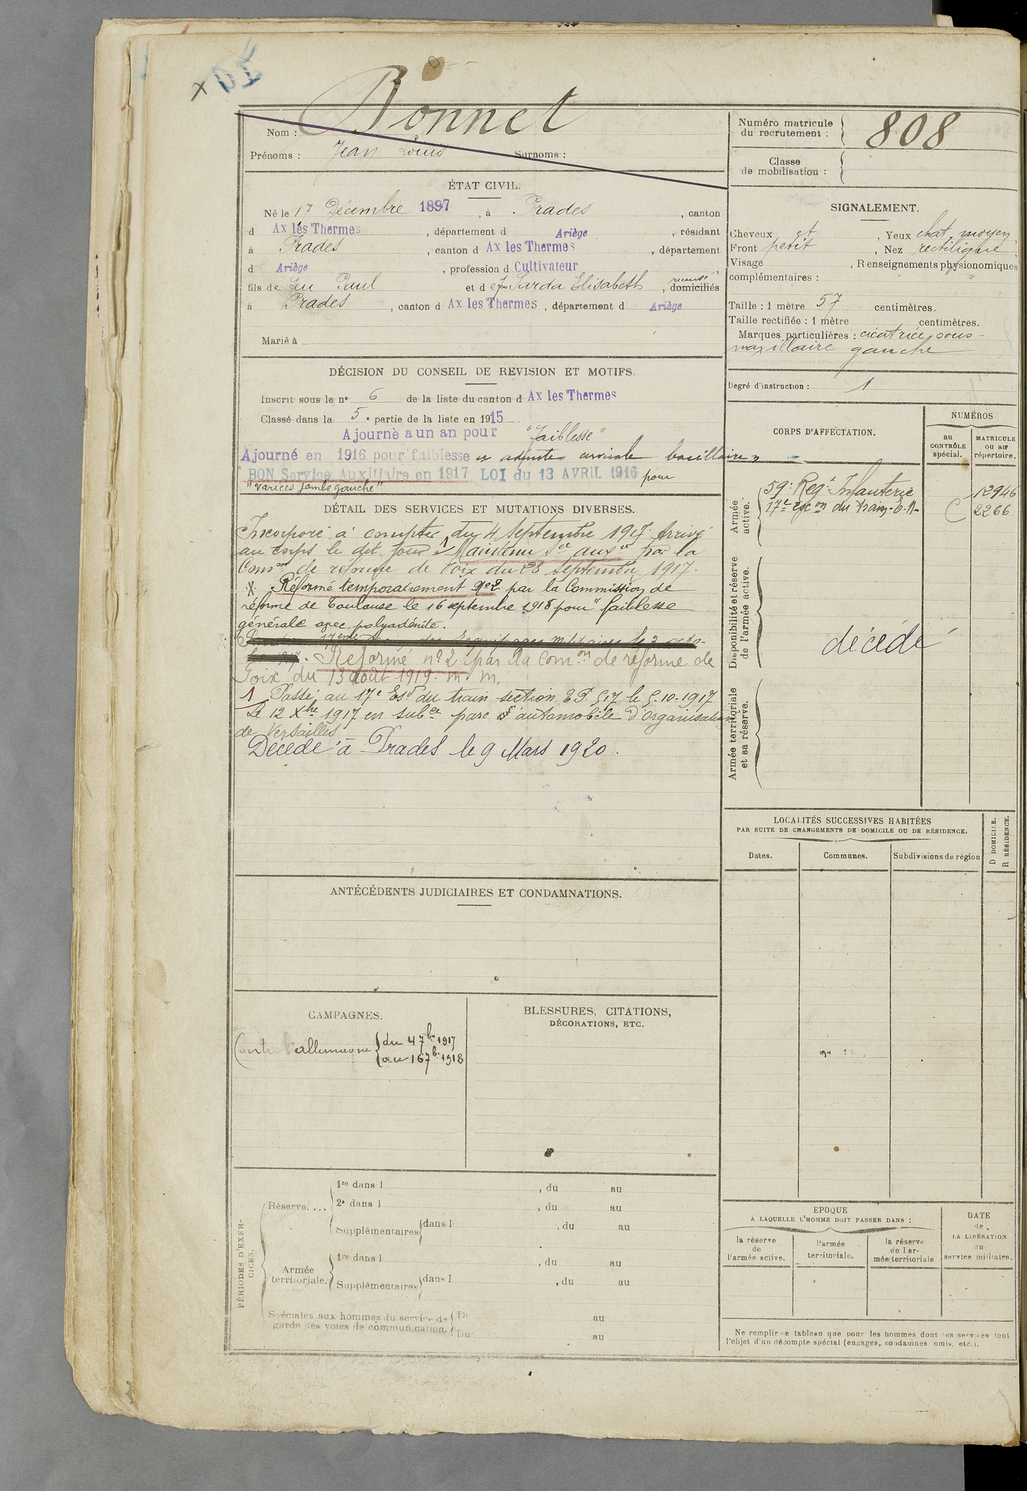 Bonnet
Nom :
Prénoms : Jean Louis Surnoms :
Numéro matricule du recrutement : 808
Classe de mobilisation :
ÉTAT CIVIL.
Né le 17 Décembre 1897, à Prades, canton
d Ax les Thermes, département d Ariège, résidant
à Prades, canton d Ax les Thermes, département
d Ariège, profession d Cultivateur
fils de feu Paul et d Sarda Elisabeth, domiciliés
à Prades, canton d Ax les Thermes, département d Ariège
Marié à
SIGNALEMENT.
Cheveux, Yeux chat. moyen
Front petit, Nez rectiligne
Visage, Renseignements physionomiques
complémentaires :
Taille : 1 mètre 57 centimètres.
Taille rectifiée : 1 mètre centimètres.
Marques particulières : cicatrice sous-
maxillaire gauche
Degré d'instruction : 1
DÉCISION DU CONSEIL DE REVISION ET MOTIFS.
Inscrit sous le n° 6 de la liste du canton d Ax les Thermes
Classé dans la 5e partie de la liste en 1915
Ajourné a un an pour "faiblesse"
Ajourné en 1916 pour faiblesse
BON Service Auxiliaire en 1917 LOI du 13 AVRIL 1916 pour
"varices jambe gauche"
DÉTAIL DES SERVICES ET MUTATIONS DIVERSES.
Incorporé à compter du 4 Septembre 1917. Arrivé
au corps le dit jour. Maintenu Sce auxre par la
Comon de réforme de Foix du 28 septembre 1917.
Réformé temporairement n°2 par la Commission de
réforme de Toulouse le 16 septembre 1918 pour "faiblesse
générale avec polyadénite.
Réformé n° 2 par la Comon de réforme de
Foix du 13 août 1919.
1 Passé au 17e Esd du train section le 5-10-1917
Le 12 Xbre 1917 en subce parc automobile d'organisation
de Versailles
Décédé à Prades le 9 Mars 1920.
CORPS D'AFFECTATION.
NUMÉROS
au CONTRÔLE spécial.
MATRICULE ou au répertoire.
Armée active.
59e Regt Infanterie 12946
17e escon du train 2266
Disponibilité et réserve de l'armée active.
décédé
Armée territoriale et sa réserve.
LOCALITÉS SUCCESSIVES HABITÉES
PAR SUITE DE CHANGEMENTS DE DOMICILE OU DE RÉSIDENCE.
Dates. Communes. Subdivisions de région D DOMICILE. R RÉSIDENCE.
ANTÉCÉDENTS JUDICIAIRES ET CONDAMNATIONS.
CAMPAGNES.
Contre l'allemagne du 4 7bre 1917
au 16 7bre 1918
BLESSURES, CITATIONS,
DÉCORATIONS, ETC.
PÉRIODES D'EXERCICES.
Réserve....
1re dans l , du au
2e dans l , du au
Supplémentaires dans l , du au
Armée territoriale.
1re dans l , du au
Supplémentaires dans l , du au
Spéciales aux hommes du service de
garde des voies de communication.
Du au
Du au
EPOQUE
À LAQUELLE L'HOMME DOIT PASSER DANS :
la réserve de l'armée active.
l'armée territoriale.
la réserve de l'armée territoriale
DATE
de
LA LIBÉRATION
du
service militaire.
Ne remplir ce tableau que pour les hommes dont les services font
l'objet d'un décompte spécial (engagés, condamnés, omis, etc.).